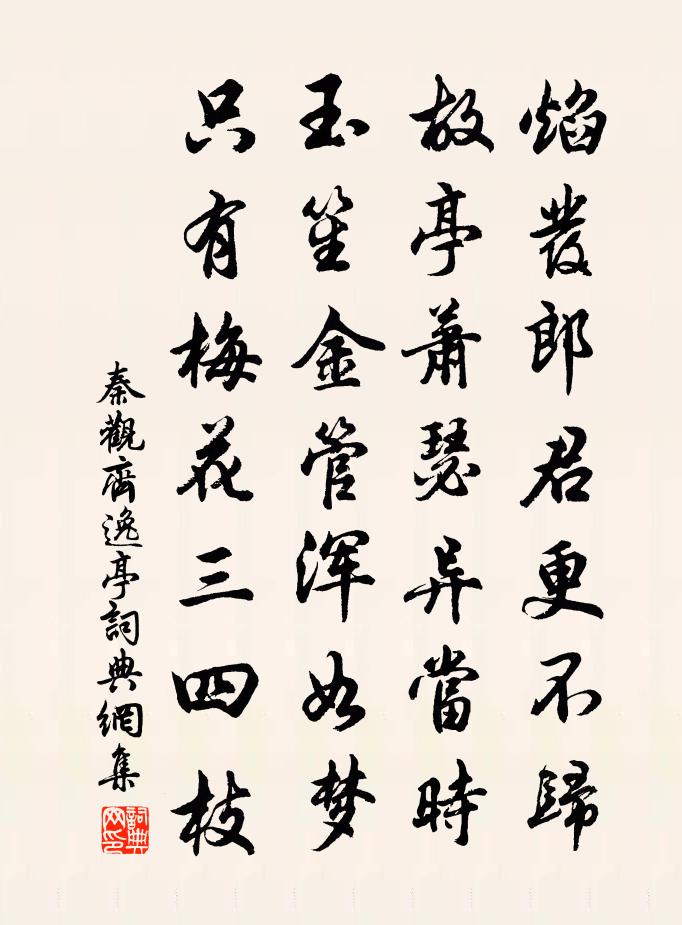 焰發郎君更不歸
故亭蕭瑟异當時
玉笙金管浑如梦
只有梅花三四枝
秦觀齊逸亭詞典網集
詞典網印